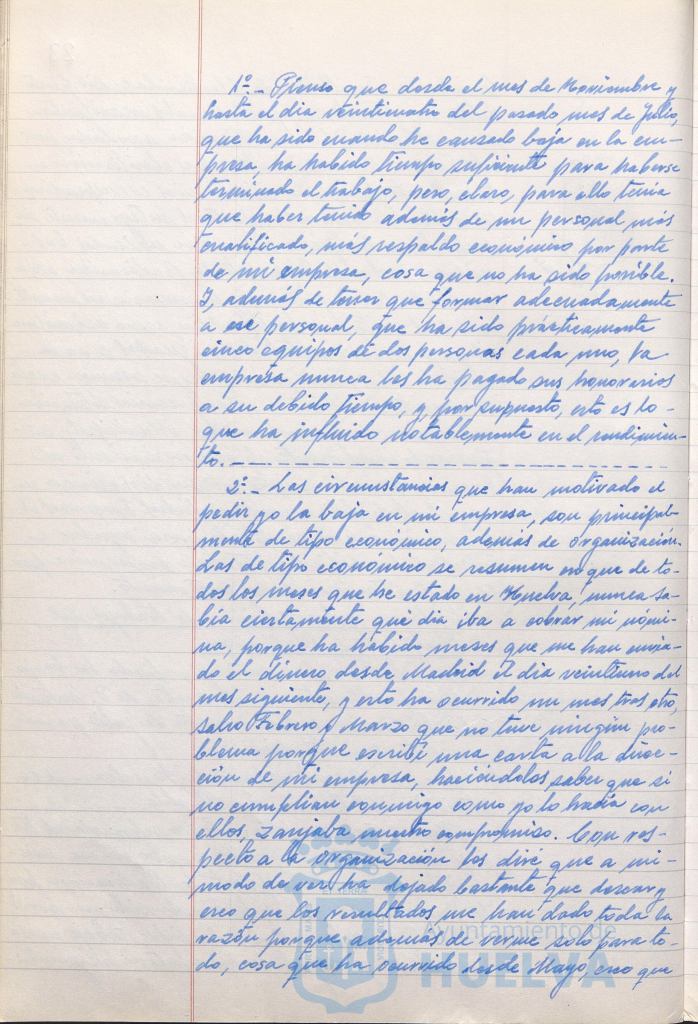 1º.- Pienso que desde el mes de Noviembre y
hasta el dia veinticuatro del pasado mes de Julio,
que ha sido cuando he causado baja en la em-
presa, ha habido tiempo suficiente para haberse
terminado el trabajo, pero, claro, para ello tenia
que haber tenido además de un personal más
cualificado, más respaldo económico por parte
de mi empresa, cosa que no ha sido posible.
Y, además de tener que formar adecuadamente
a ese personal, que ha sido prácticamente
cinco equipos de dos personas cada uno, la
empresa nunca les ha pagado sus honorarios
a su debido tiempo, y, por supuesto, esto es lo
que ha influido notablemente en el rendimien-
to.-
2º.- Las circunstancias que han motivado el
pedir yo la baja en mi empresa, son principal-
mente de tipo económico, además de organización.
Las de tipo económico se resumen en que de to-
dos los meses que he estado en Huelva, nunca sa-
bía ciertamente qué dia iba a cobrar mi nómi-
na, porque ha habido meses que me han envia-
do el dinero desde Madrid el dia veintiuno del
mes siguiente, y esto ha ocurrido un mes tras otro,
salvo Febrero y Marzo que no tuve ningún pro-
blema porque escribí una carta a la direc-
ción de mi empresa, haciéndoles saber que si
no cumplian conmigo como yo lo hacía con
ellos, zanjaba nuestro compromiso. Con res-
pecto a la organización les diré que a mi
modo de ver, ha dejado bastante que desear y
creo que los resultados me han dado toda la
razón porque además de verme solo para to-
do, cosa que ha ocurrido desde Mayo, creo que
Ayuntamiento de
HUELVA